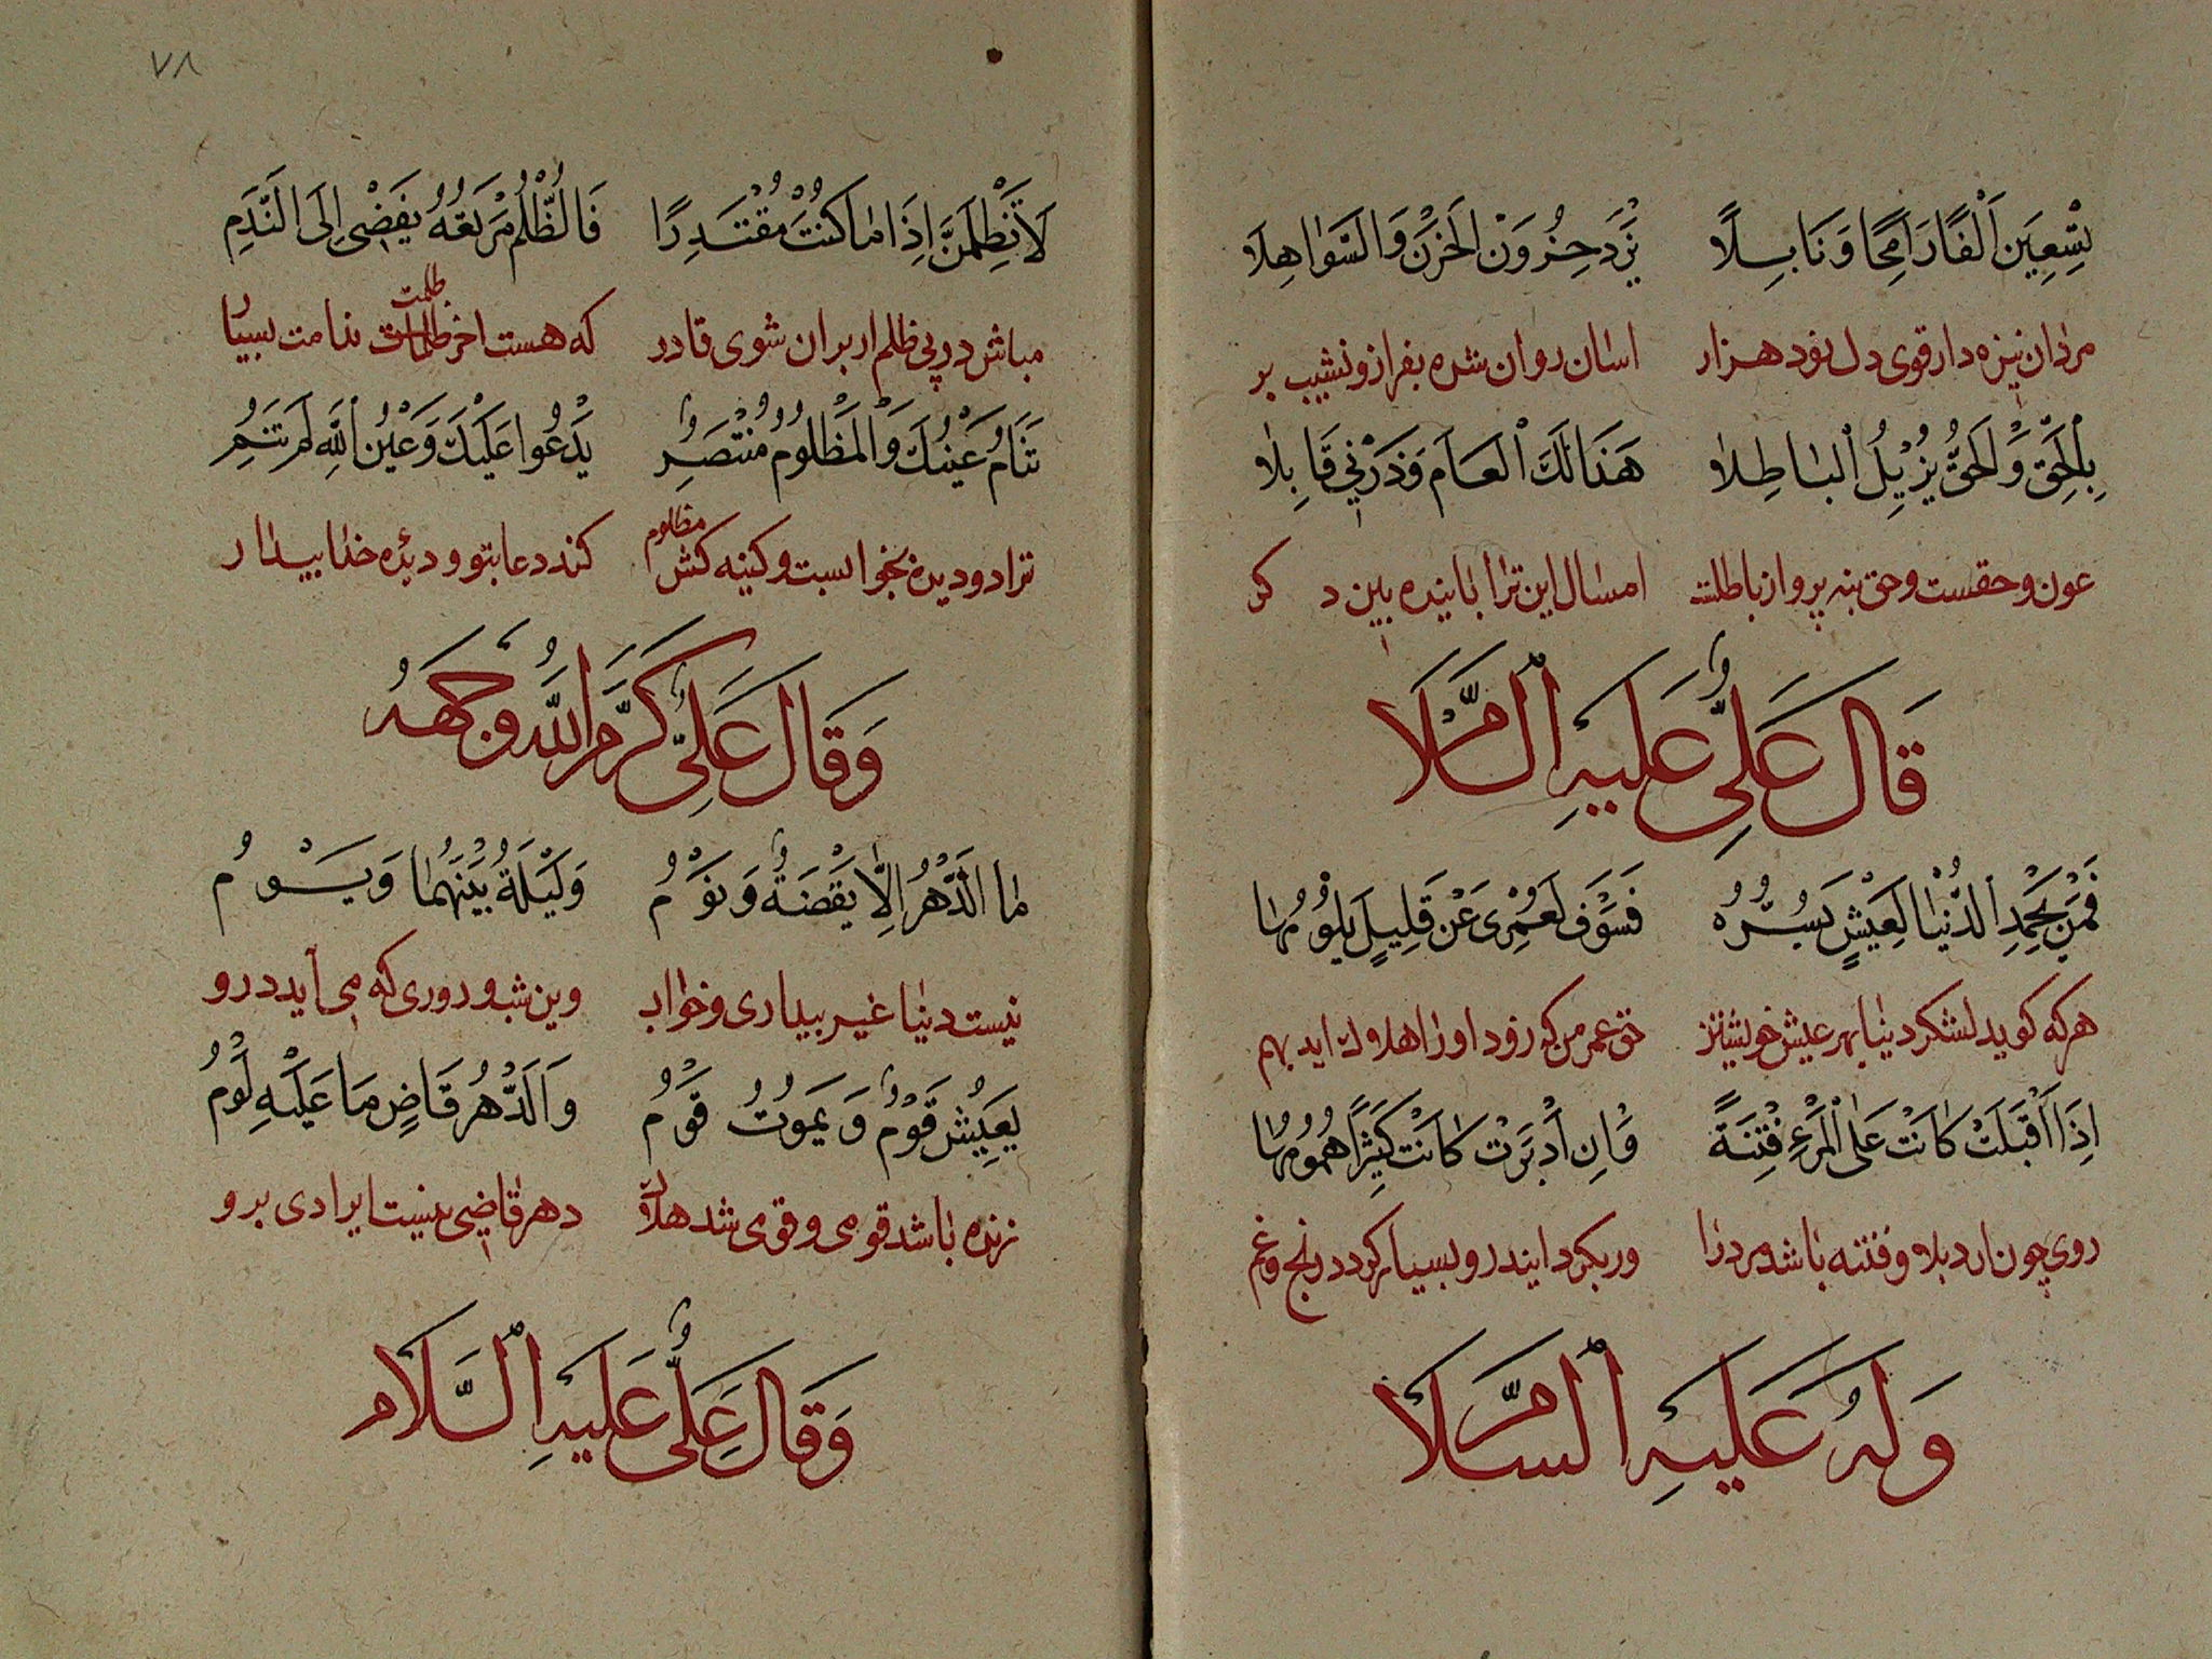 تِسْعِينَ اَلْفًا رَامِحًا وَنَابِلًا يَزْدَحِزُونَ الْحَزْنَ وَالسَّوٰاهِلَا
مردان نیزه دار قوی دل نود هزار اسٰان روان شده بفراز و نشیب بر
بِالْحَقِّ وَالْحَقُّ يُزِيلُ الْبٰاطِلٰا هَذَا لَكَ الْعَامَ وَذَرْنِي قَابِلٰا
عون و حقست و حق بنه پرواز باطلت امسال این ترا بٰاینده بین د کر
قَالَ عَلِيٌّ عَلَيْهِ السَّلَامُ
فَمَنْ يَحْمَدِ الدُّنْيٰا لِعَيْشٍ يَسُرُّهُ فَسَوْفَ لَعَمْرِى عَنْ قَلِيلٍ يَلُومُهٰا
هر که کوید لشکر دینا بهر عیش خویشتن حق عمر من که زود اورٰا هلاوك اید بهم
اِذَا اَقْبَلَتْ كٰانَتْ عَلَى الْمَرْءِ فِتْنَةً وَاِنْ اَدْبَرَتْ كٰانَتْ كَثِيرًا هُمُومُهٰا
روی چون ارد بلا و فتنه بٰاشد مرد رٰا ور بکرداند رو بسیار کردد رنج و غم
وَلَهُ عَلَيْهِ السَّلَامُ
٧٨
لَا تَظْلِمَنَّ اِذَا مٰا كُنْتَ مُقْتَدِرًا فَالظُّلْمُ مَرْتَعُهُ يَفْضِى اِلَى النَّدَمِ
مباش در پی ظلم ار بران شوی قادر که هست اخر ظلمت ندامت بسیار
تَنَامُ عَيْنُكَ وَالْمَظْلُومُ مُنْتَصِرٌ يَدْعُوا عَلَيْكَ وَعَيْنُ اللهِ لَمْ تَنَمِ
ترا دو دیده بخوابست و کینه کش مظلوم کند دعا بتو و دیدۀ خدا بیدار
وَقَالَ عَلِيٌّ كَرَّمَ اللهُ وَجْهَهُ
مٰا الدَّهْرُ اِلَّا يَقْضَةٌ وَنَوْمُ وَلَيْلَةٌ بَيْنَهُمٰا وَيَوْمُ
نیست دنیٰا غیر بیداری و خوٰاب وین شب و روری که می آید درو
يَعِيشُ قَوْمٌ وَيَمُوتُ قَوْمُ وَالدَّهْرُ قَاضٍ مَا عَلَيْهِ لَوْمُ
زنده بٰاشد قومی و قومی شد هلاك دهر قاضی نیست ایرادی برو
وَقَالَ عَلِيٌّ عَلَيْهِ السَّلَامُ